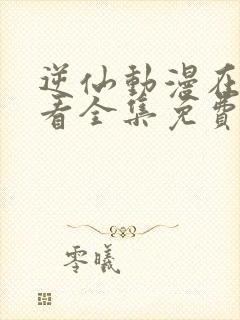 逆仙動漫在
看全集免費
零曦